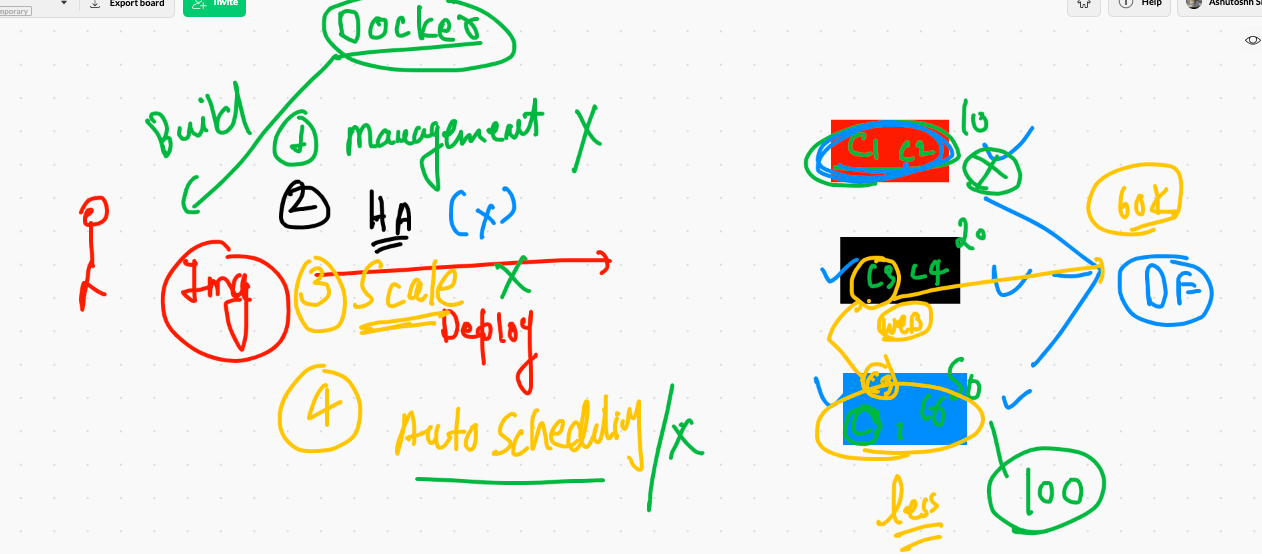 mporary
Export board
Invite
Help
Docker
Build
1 management X
2 HA (x)
Img
3 Scale X
Deploy
4 Auto Scheduling / X
C1 C2
10
X
60%
20
C3 C4
WEB
DF
C3
50
C6
100
less